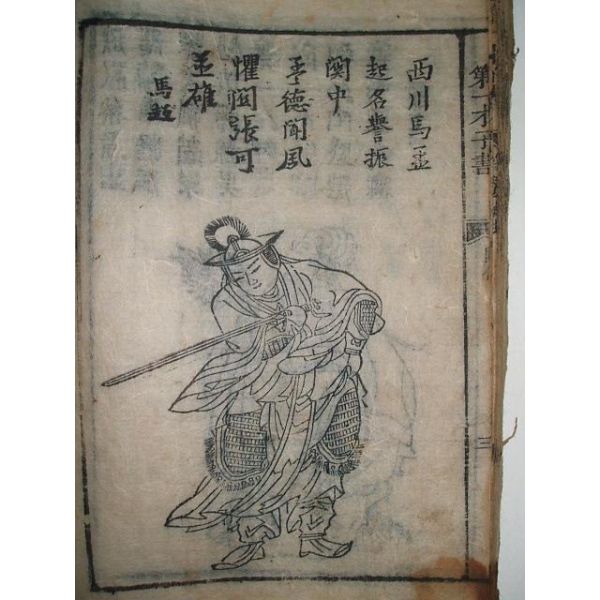 第一才子書
三
西川馬孟
起名譽振
関中
孟德聞風
懼関張可
並雄
馬超